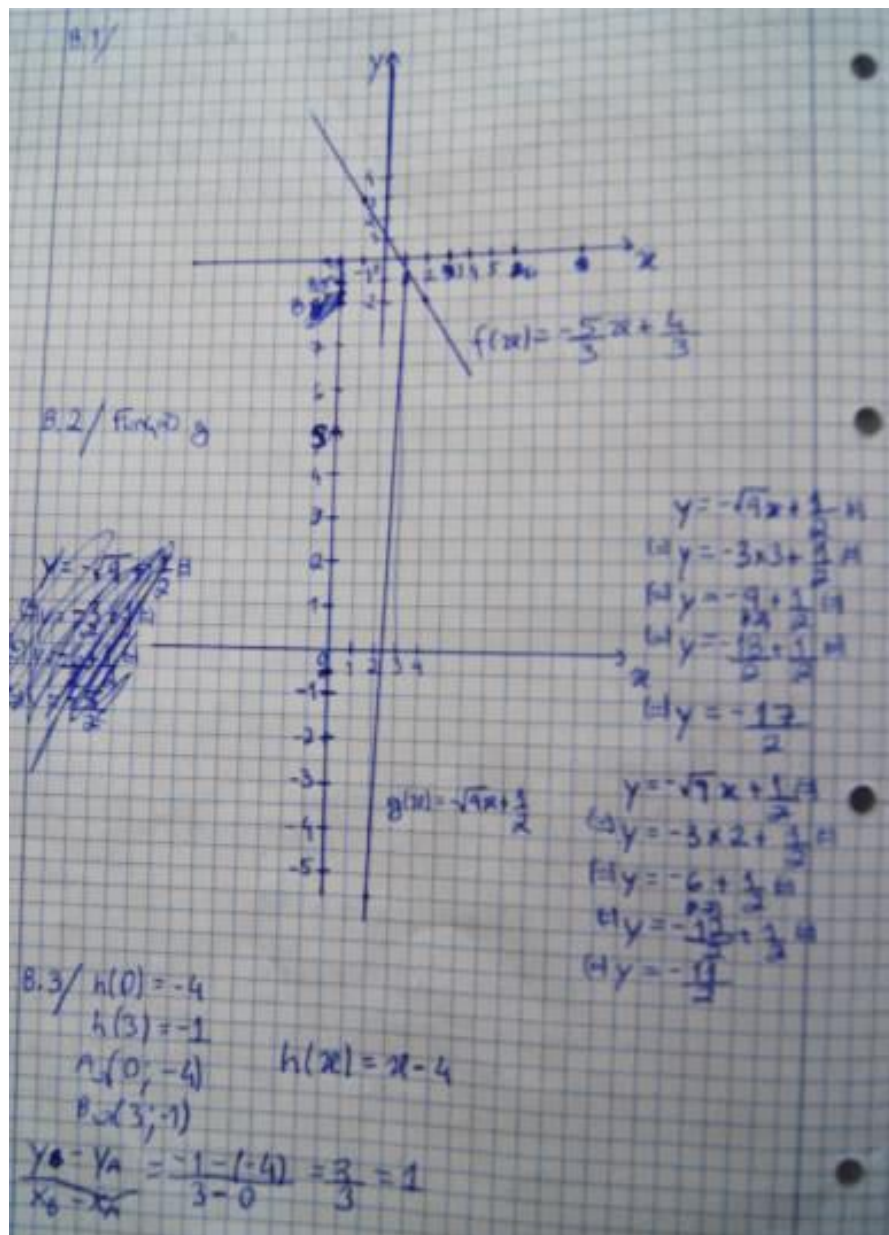 8.1/
y
x
-1 2 3 4 5
2
f(x) = -5/3 x + 4/3
8.2/
7
6
5
4
3
2
1
0 1 2 3 4
x
-1
-2
-3
-4
-5
g(x) = -√9x + 1/2
y = -√9x + 1/2 (=)
(=) y = -3×3 + 1/2 (=)
(=) y = -9 + 1/2 (=)
(=) y = -18/2 + 1/2 (=)
(=) y = -17/2
y = -√9x + 1/2 (=)
(=) y = -3×2 + 1/2 (=)
(=) y = -6 + 1/2 (=)
(=) y = -12/2 + 1/2 (=)
(=) y = -11/2
8.3/ h(0) = -4
h(3) = -1
A (0; -4)
h(x) = x - 4
B (3; -1)
yB - yA / xB - xA = -1-(-4) / 3-0 = 3/3 = 1